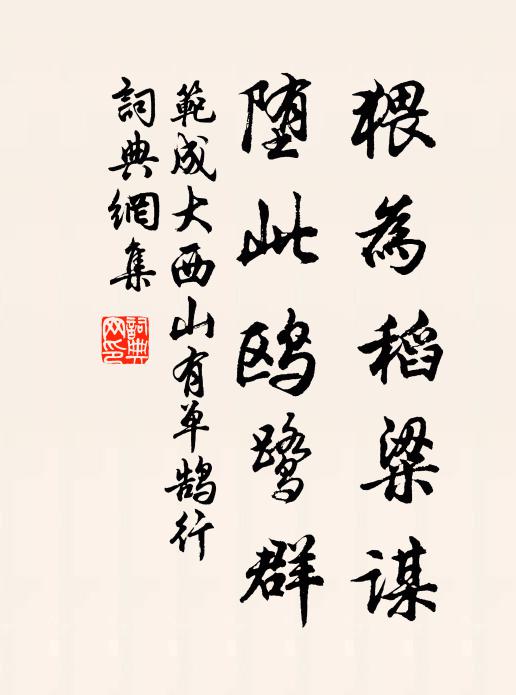 猥為稻粱謀
墮此鸥鹭群
範成大西山有单鹄行
詞典網集
詞典
网印